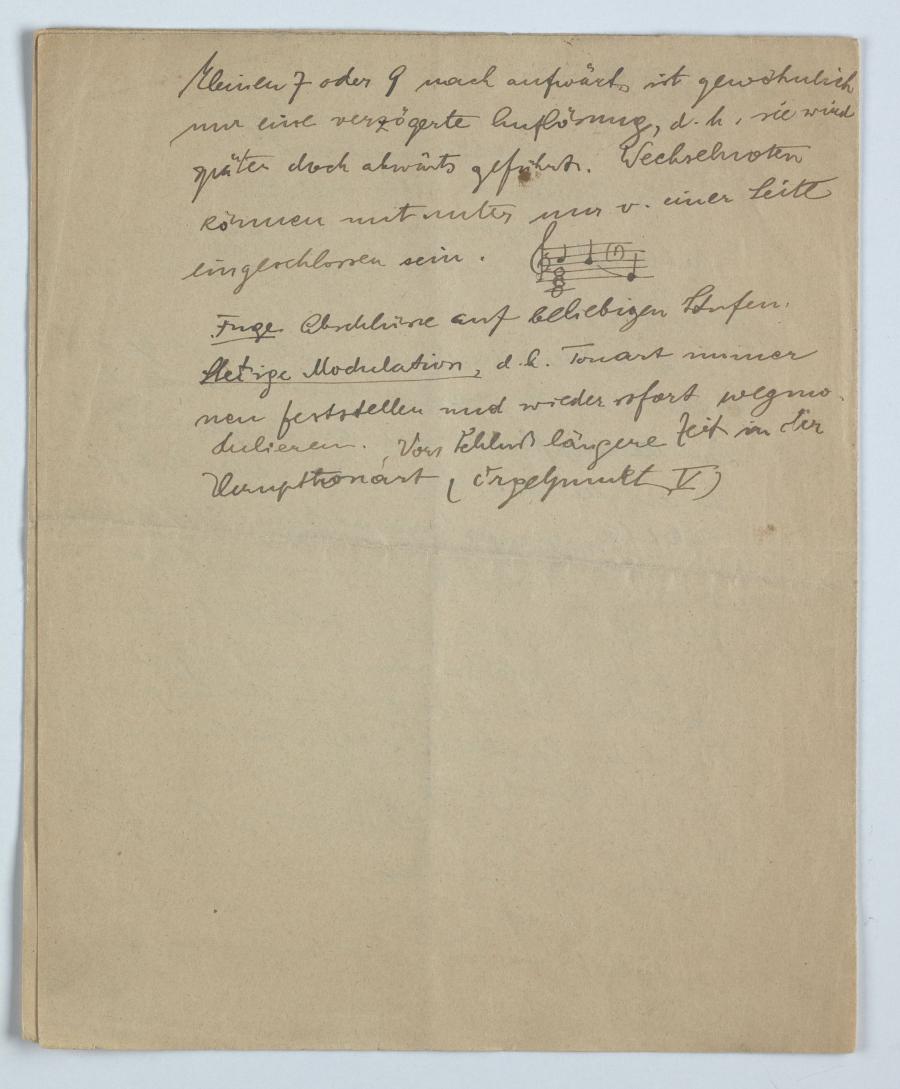 kleinen 7 oder 9 nach aufwärts ist gewöhnlich
nur eine verzögerte Auflösung, d. h. sie wird
später doch abwärts geführt. Wechselnoten
können mitunter nur v. einer Seite
eingeschlossen sein.
Fuge Abschlüsse auf beliebigen Stufen.
Stetige Modulation, d. h. Tonart immer
neu feststellen und wieder sofort wegmo-
dulieren. Vors Schluß längere Zeit in der
Haupttonart (Orgelpunkt V)